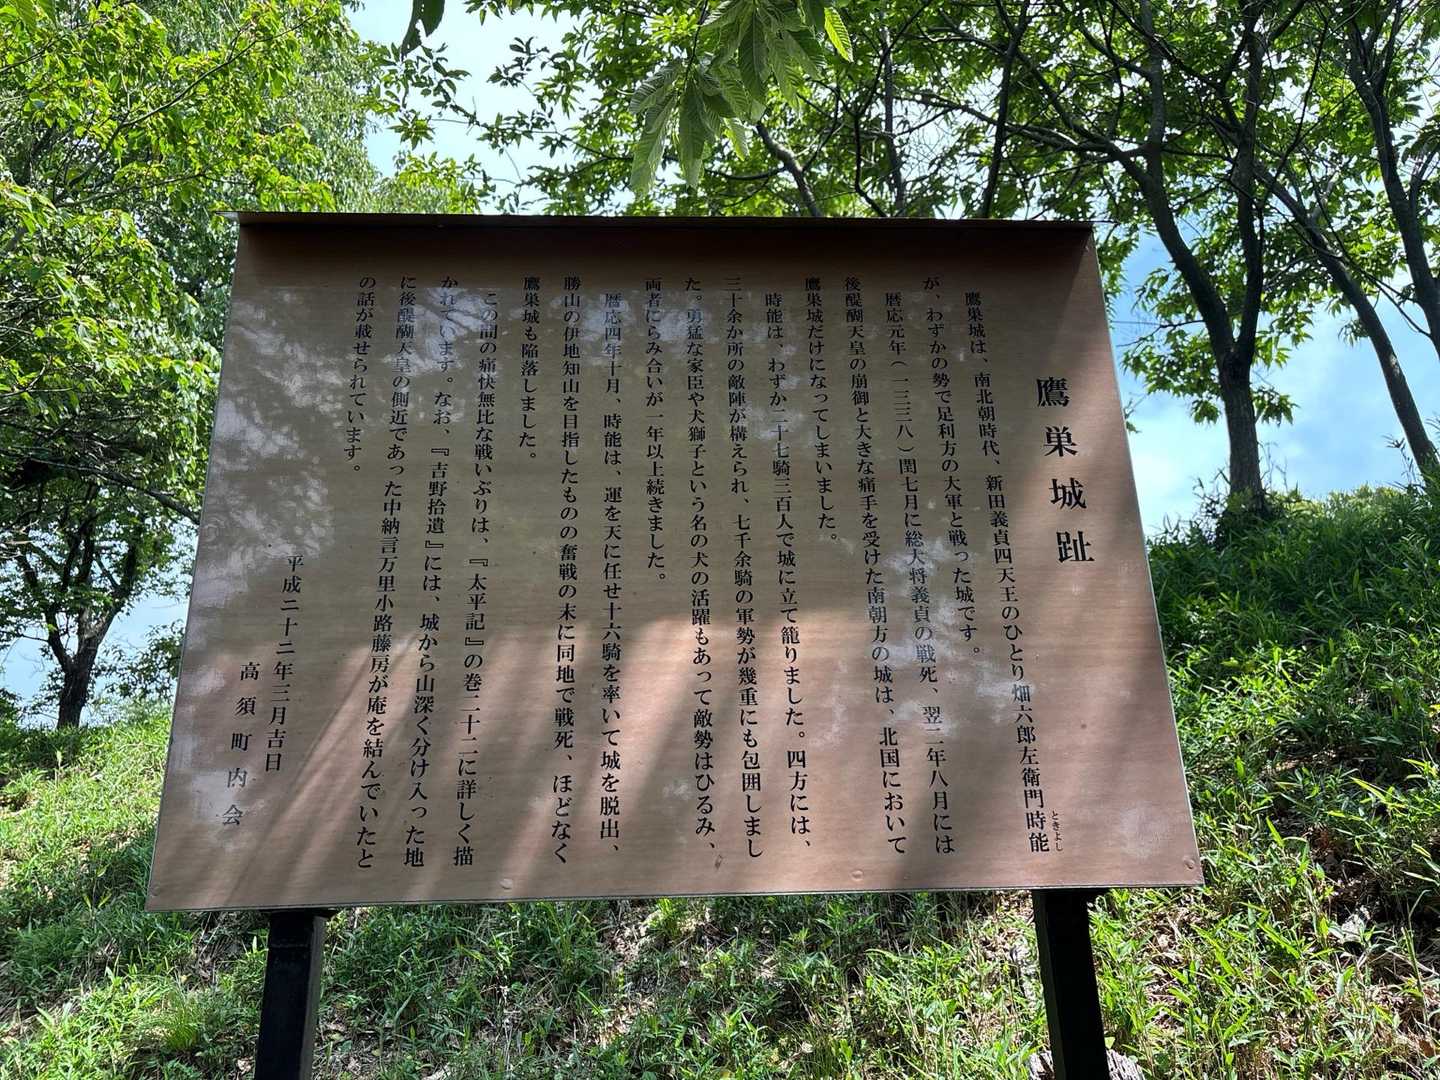 鷹巣城趾
鷹巣城は、南北朝時代、新田義貞四天王のひとり畑六郎左衛門時能
ときよし
が、わずかの勢で足利方の大軍と戦った城です。
暦応元年(一三三八)閏七月に総大将義貞の戦死、翌二年八月には
後醍醐天皇の崩御と大きな痛手を受けた南朝方の城は、北国において
鷹巣城だけになってしまいました。
時能は、わずか二十七騎三百人で城に立て籠りました。四方には、
三十余か所の敵陣が構えられ、七千余騎の軍勢が幾重にも包囲しまし
た。勇猛な家臣や犬獅子という名の犬の活躍もあって敵勢はひるみ、
両者にらみ合いが一年以上続きました。
暦応四年十月、時能は、運を天に任せ十六騎を率いて城を脱出、
勝山の伊地知山を目指したものの奮戦の末に同地で戦死、ほどなく
鷹巣城も陥落しました。
この間の痛快無比な戦いぶりは、『太平記』の巻二十二に詳しく描
かれています。なお、『吉野拾遺』には、城から山深く分け入った地
に後醍醐天皇の側近であった中納言万里小路藤房が庵を結んでいたと
の話が載せられています。
平成二十二年三月吉日
高須町内会